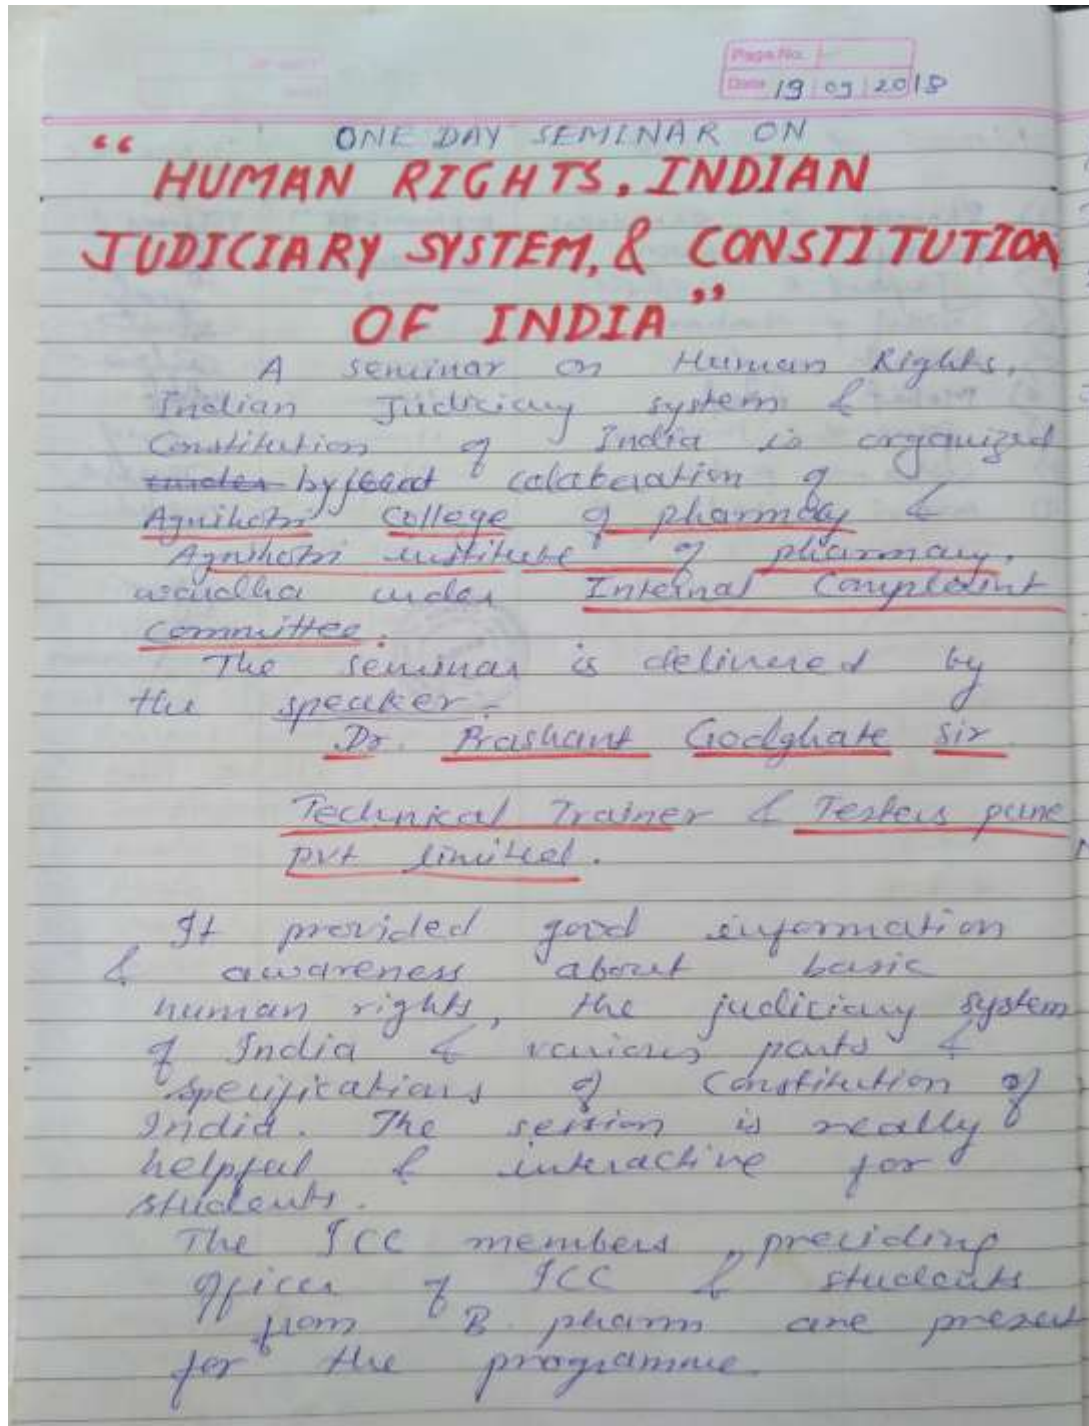 Page No.
Date 19 09 2018
ONE DAY SEMINAR ON
“ HUMAN RIGHTS, INDIAN
JUDICIARY SYSTEM, & CONSTITUTION
OF INDIA ”
A seminar on Human Rights,
Indian Judiciary system &
Constitution of India is organized
by colaberation of
Agnihotri College of pharmacy &
Agnihotri institute of pharmacy,
wardha under Internal Complaint
Committee.
The seminar is delivered by
the speaker.
Dr. Prashant Godghate sir
Technical Trainer & Testers pune
pvt limited.
It provided good information
& awareness about basic
human rights, the judiciary system
of India & various parts &
specifications of Constitution of
India. The session is really
helpful & interactive for
students.
The ICC members, presiding
officer of ICC & students
from B. pharm are present
for the programme.